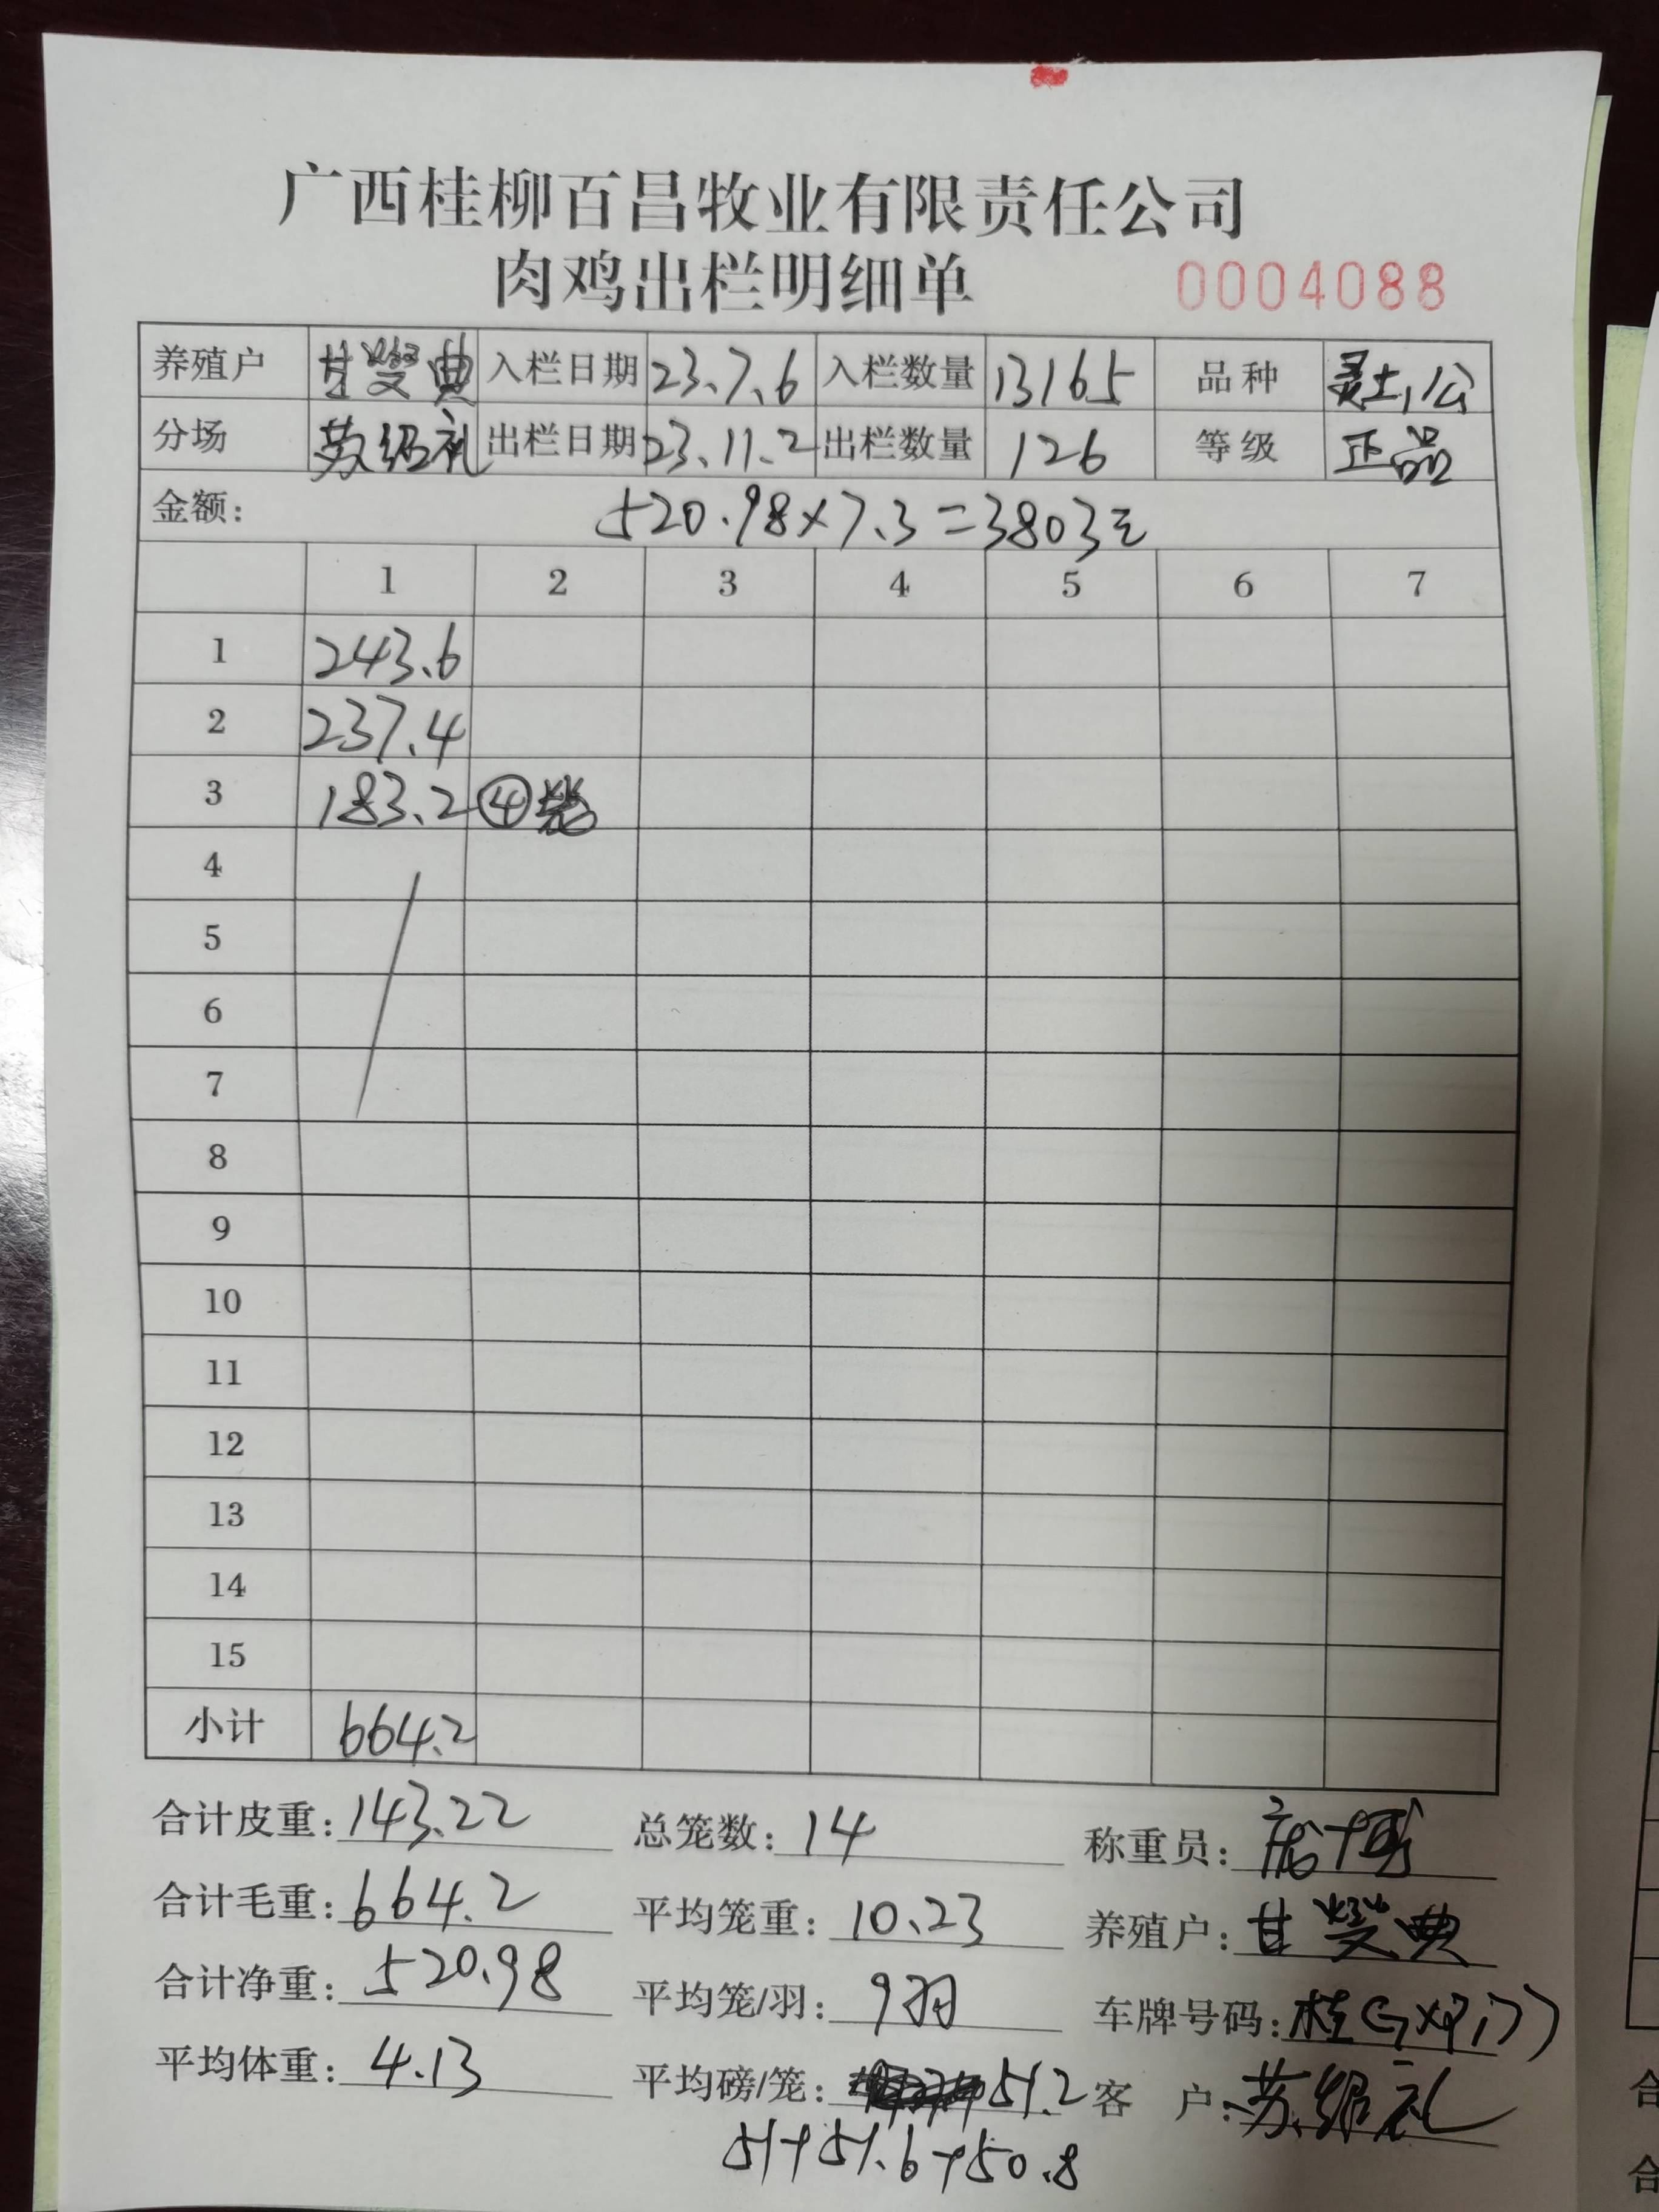 广西桂柳百昌牧业有限责任公司
肉鸡出栏明细单 0004088
养殖户 甘燮典 入栏日期 23.7.6 入栏数量 13165 品种 灵土1公
分场 苏绍礼 出栏日期 23.11.2 出栏数量 126 等级 正品
金额: 520.98×7.3=3803元
1 2 3 4 5 6 7
1 243.6
2 237.4
3 183.2 ④笼
4
5
6
7
8
9
10
11
12
13
14
15
小计 664.2
合计皮重: 143.22 总笼数: 14 称重员:
合计毛重: 664.2 平均笼重: 10.23 养殖户: 甘燮典
合计净重: 520.98 平均笼/羽: 9羽 车牌号码: 桂G
平均体重: 4.13 平均磅/笼: 51.2 客户: 苏绍礼
51+51.6+50.8
合
合